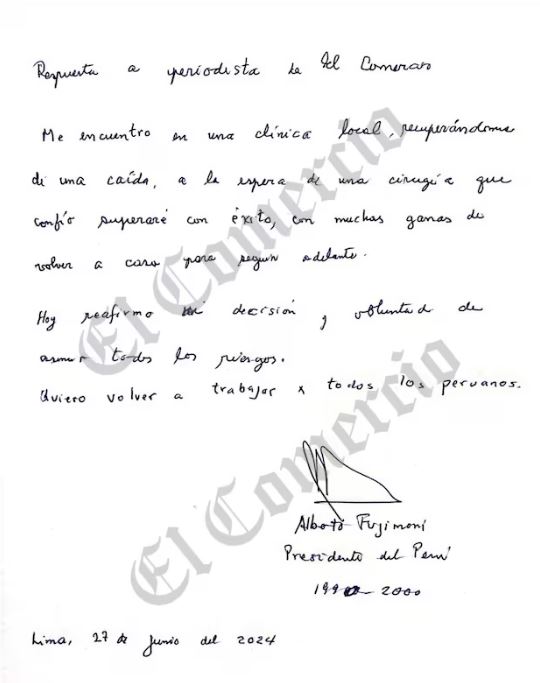 Respuesta a periodista de El Comercio
Me encuentro en una clínica local, recuperándome
de una caída, a la espera de una cirugía que
confío superaré con éxito, con muchas ganas de
volver a casa para seguir adelante.
Hoy reafirmo mi decisión y voluntad de
asumir todos los riesgos.
Quiero volver a trabajar x todos los peruanos.
Alberto Fujimori
Presidente del Perú
1990 - 2000
Lima, 27 de junio del 2024
El Comercio
El Comercio